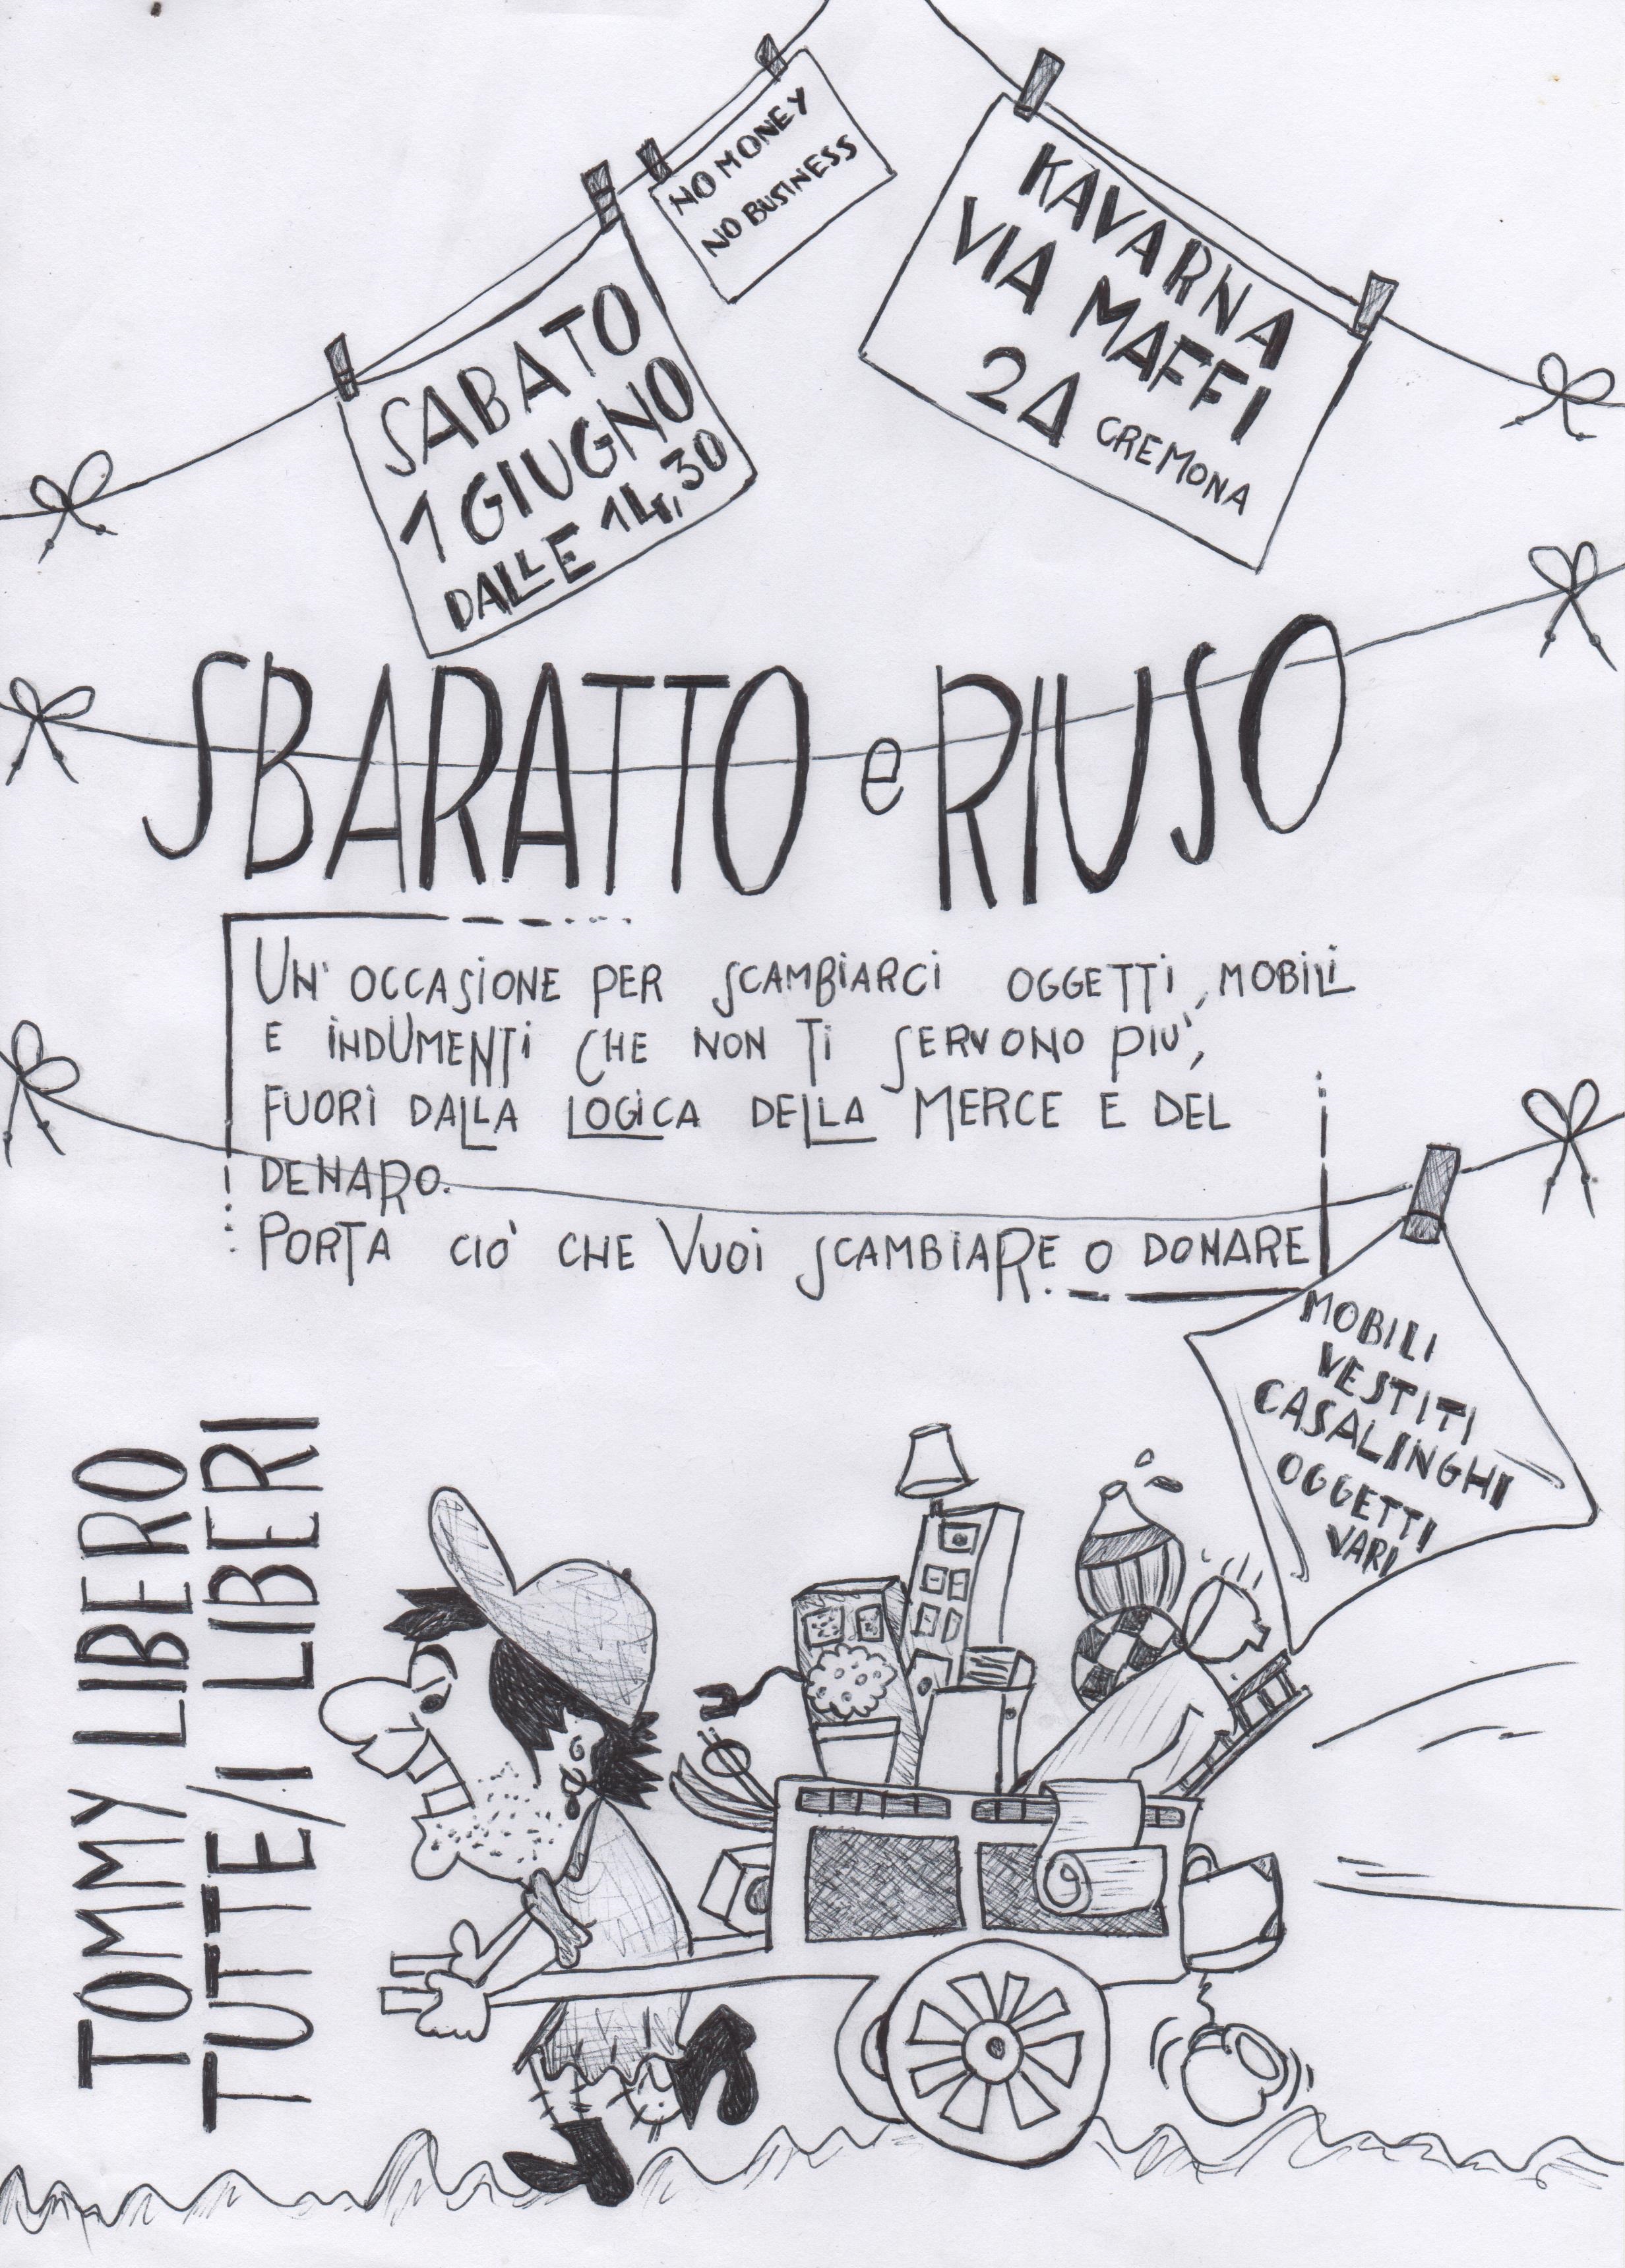 NO MONEY
NO BUSINESS
SABATO
1 GIUGNO
DALLE 14,30
KAVARNA
VIA MAFFI
2A CREMONA
SBARATTO e RIUSO
UN' OCCASIONE PER SCAMBIARCI OGGETTI, MOBILI
E INDUMENTI CHE NON TI SERVONO PIU',
FUORI DALLA LOGICA DELLA MERCE E DEL
DENARO.
PORTA CIO' CHE VUOI SCAMBIARE O DONARE
MOBILI
VESTITI
CASALINGHI
OGGETTI
VARI
TOMMY LIBERO
TUTTE/I LIBERI